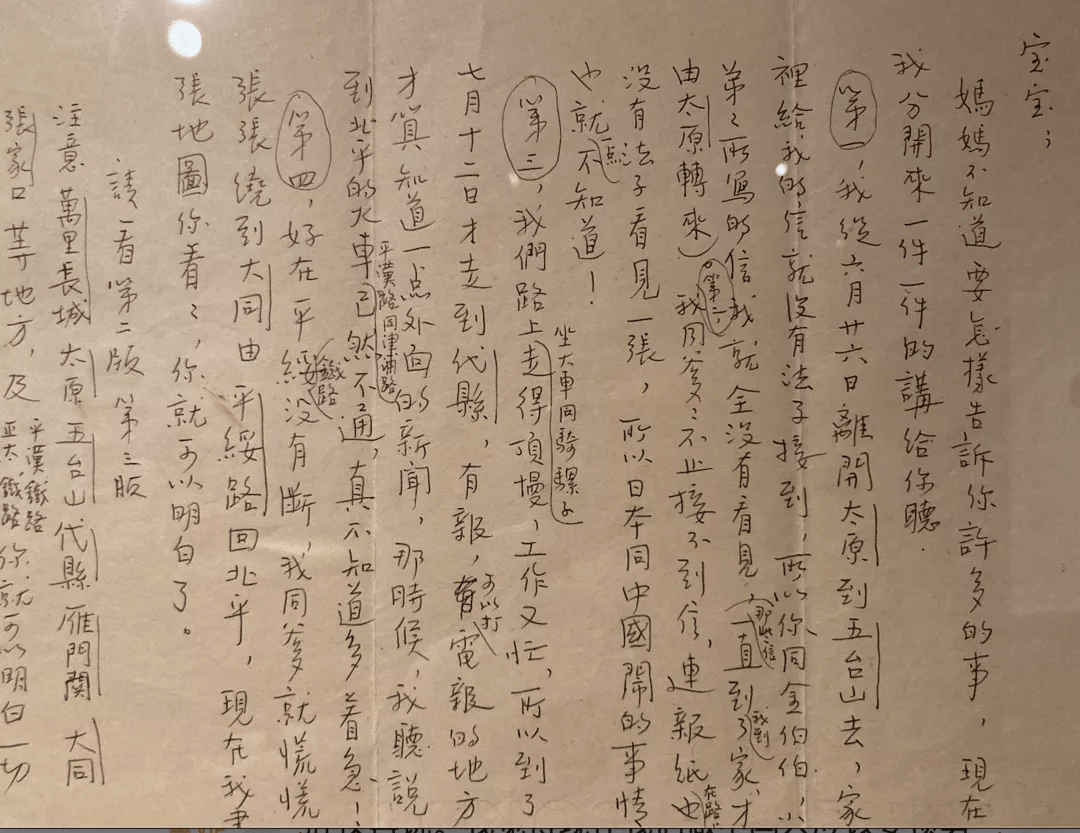 宝宝；
媽媽不知道要怎樣告訴你許多的事，現在
我分開來一件一件的講給你聽.
第一，我從六月廿六日離開太原到五台山去，家
裡給我的信就没有法子接到，所以你同金伯伯，小
弟〻所寫的信我就全没有看見，（那些信一直到我到了家，才
由太原轉來）。第二 我同爹〻不止接不到信，連報紙在路也
没有法子看見一張，所以日本同中國鬧的事情
也就一點不知道！
第三，我們路上坐大車同騎騾子走得頂慢，工作又忙，所以到了
七月十二日才走到代縣，有報，可以打電報的地方
才算知道一点外面的新聞，那時候，我聽說
到北平的火車平漢路同津浦路已然不通，真不知道多着急！
第四，好在平綏鐵路没有斷，我同爹就慌慌
張張繞到大同由平綏路回北平，現在我畫
張地圖你看〻，你就可以明白了。
請看第二版 第三版
注意萬里長城 太原 五台山 代縣 雁門関 大同
張家口等地方，及平漢鐵路正太鐵路你就可以明白一切